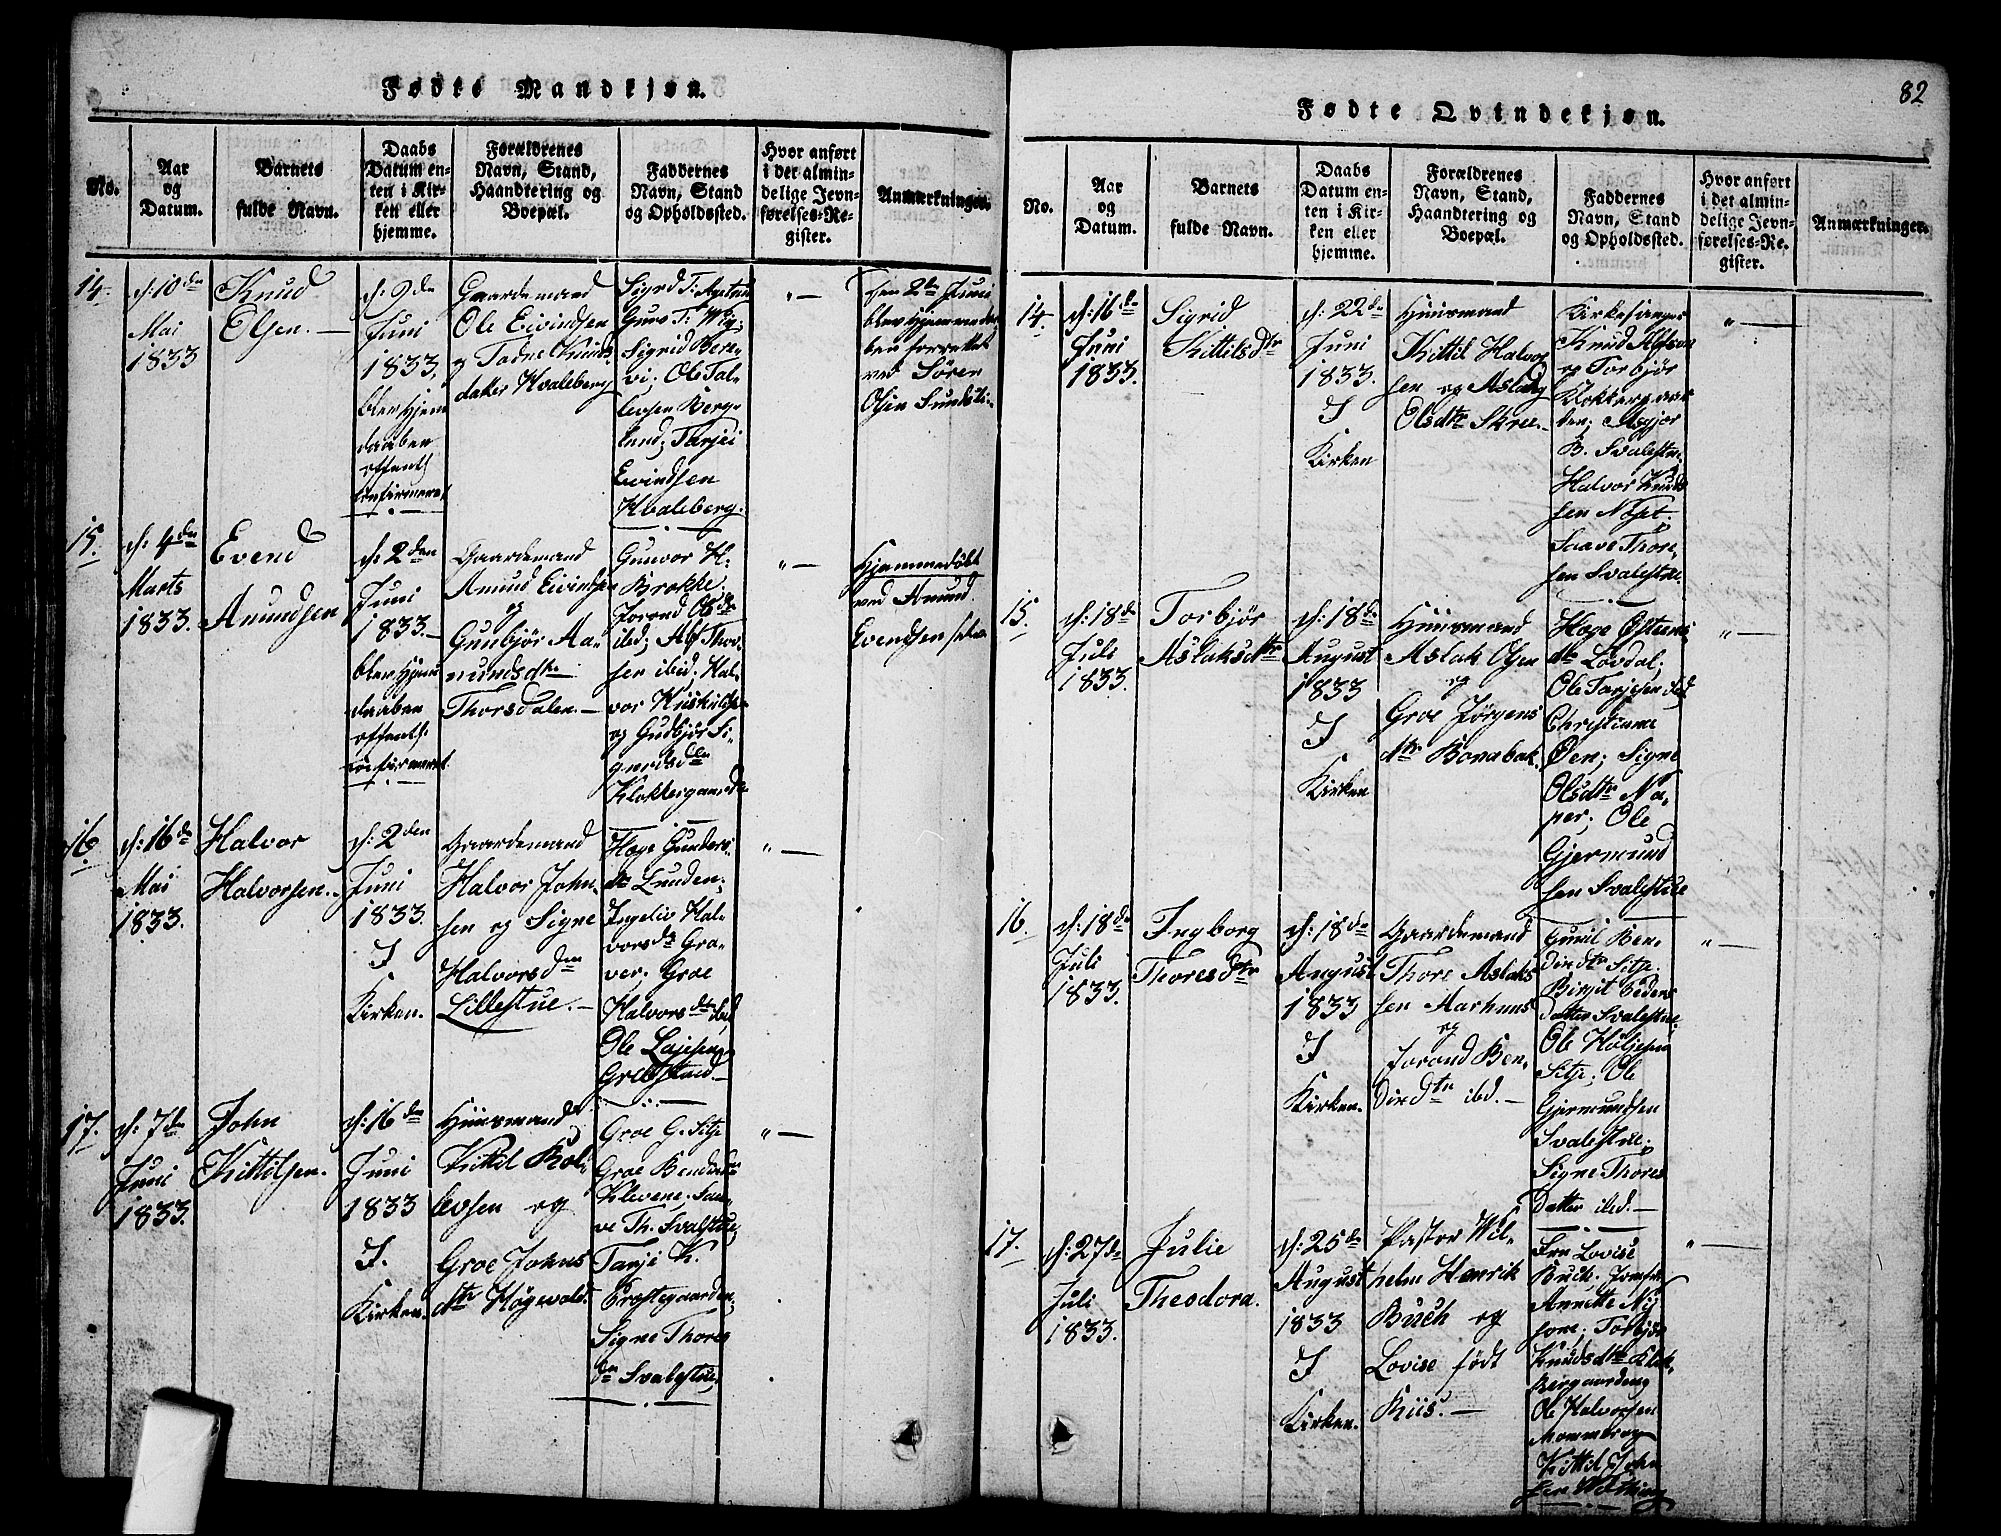 Fødte Mandkjøn.
No.
Aar
og
Datum.
Barnets
fulde Navn.
Daabs
Datum en-
ten i Kir-
ken eller
hjemme.
Forældrenes
Navn, Stand,
Haandtering og
Boepæl.
Faddernes
Navn, Stand
og Opholdssted.
Hvor anført
i det almin-
delige Jevn-
førelses-Re-
gister.
Anmærkninger.
14.
d: 10de
Mai
1833
Knud
Olsen.
d: 9de
Juni
1833.
blev Hjem
daaben
offentl
confirmeret
Gaardemand
Ole Eivindsen
og Tadne Knuds
datter Kvaleberg
Sigrid Bere-
vi; Ole Tal-
levsen Berg-
lund; Tarjei
Eivindsen
Kvaleberg.
" —
den 2de Juni
blev Hjemmedaa-
ben forrettet
ved Søren
Olsen
15.
d: 4de
Marts
1833.
Evend
Amundsen
d: 2den
Juni
1833.
blev Hjem
daaben
offentl:
confirmeret
Gaardemand
Amund Eivindsen
og
Gunbjør Aa-
mundsdtr
Thorsdalen. —
Gunvor H.
Brokke;
Jorand Olsdr
ibd; Thor-
sen ibid; Hal-
vor
og Gudbjør Si-
gurdsde
Klokkergaarde
" —
Hjemmedøbt
ved Amund
Evendsen
16.
d: 16de
Mai
1833.
Halvor
Halvorsen.
d: 2den
Juni
1833.
I
Kirken.
Gaardemand
Halvor John-
sen og Signe
Halvorsden
Lillestue. —
Hæge Gunders-
dr Lunden;
Ingeliv Hal-
vorsdr Gra-
ver; Groe
Halvorsdtr ibd,
Ole
" —
17.
d: 7de
Juni
1833.
John
Kittilsen.
d: 16de
Juni
1833
I.
Kirken.
Huusmand
Kittil Rol-
levsen og
Groe Johns
dtr Høgevold.
Groe G. Sitje
Groe
Klevene; Saa-
ve Th. Svalestue,
Tarje K.
Prestegaarden;
Signe Thores
dr Svalestue,
" —
82
Fødte Qvindekjøn.
No.
Aar
og
Datum.
Barnets
fulde Navn.
Daabs
Datum en-
ten i Kir-
ken eller
hjemme.
Forældrenes
Navn, Stand,
Haandtering og
Boepæl.
Faddernes
Navn, Stand
og Opholdssted.
Hvor anført
i det almin-
delige Jevn-
førelses-Re-
gister.
Anmærkninger.
14.
d: 16de
Juni
1833.
Sigrid
Kittilsdtr
d: 22de
Juni
1833.
I
Kirken
Huusmand
Kittil Halvor
sen og Aslaug
Olsdtr Skree. —
Kirkesanger
Knud
og Torbjør
Klokkergaar-
den; Asgjer
B. Svalestue
Halvor Knud
sen
Saave Thore-
sen Svalestue.
" —
15.
d: 18de
Juli
1833.
Torbjør
Aslaksdtr
d: 18de
August
1833
I
Kirken
Huusmand
Aslak Olsen
og
Groe Jørgens
dtr
Hæge
dtr Lovdal;
Ole Tarjesen ibd
Christiane
Øen; Signe
Olsdtr Na-
per; Ole
Gjermund
sen Svalestue
" —
16.
d: 18de
Juli
1833.
Ingborg
Thoresdtr
d: 18de
August
1833
I
Kirken.
Gaardemand
Thore Aslaks
sen Aarhuus
og
Jorand Ben-
dixdtr ibd. —
Gunil Ben-
dixdtr Sitje;
Birgit
Datter Svalestue.
Ole Høljesen
Sitje; Ole
Gjermundsen
Svalestue;
Signe Thores
Datter ibd. —
" —
17.
d: 27de
Juli
1833.
Julie
Theodora.
d: 25de
August
1833
I
Kirken.
Pastor Wil-
helm Henrik
Buch og
Lovise født
Kiis. —
Fru Lovise
Buch; Jomfr
Annette
Torbjør
Knudsdtr Klok-
kergaarden;
Ole Halvorsen
Kittil John
sen
" —